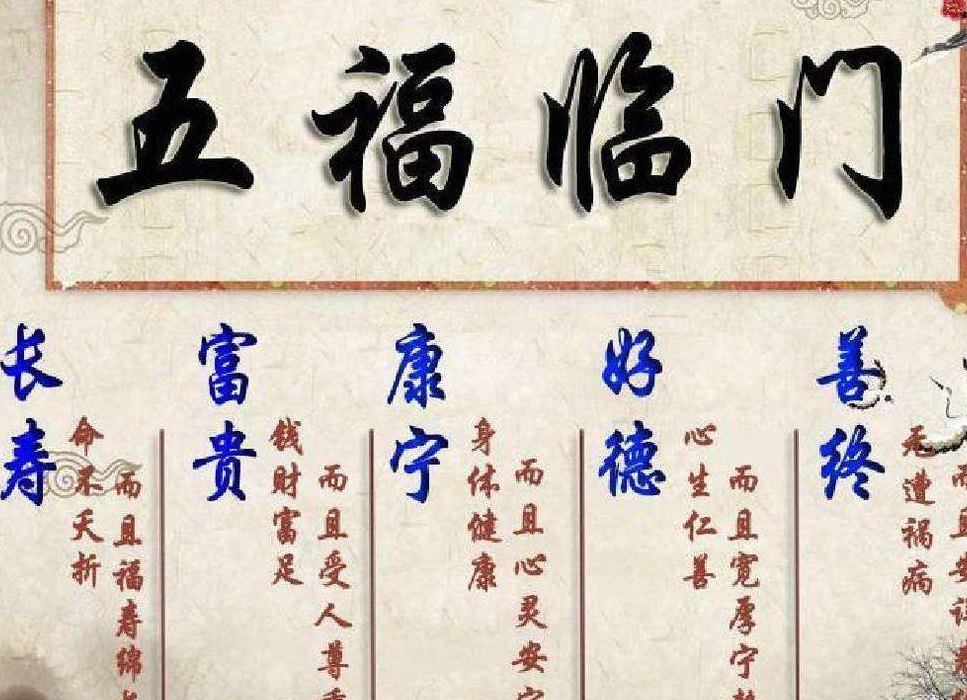 五福临门
长寿
命不夭折
而且福寿绵
富贵
钱财富足
而且受人尊
康宁
身体健康
而且心灵安宁
好德
心生仁善
而且宽厚宁
善终
无遭祸病
而且安详